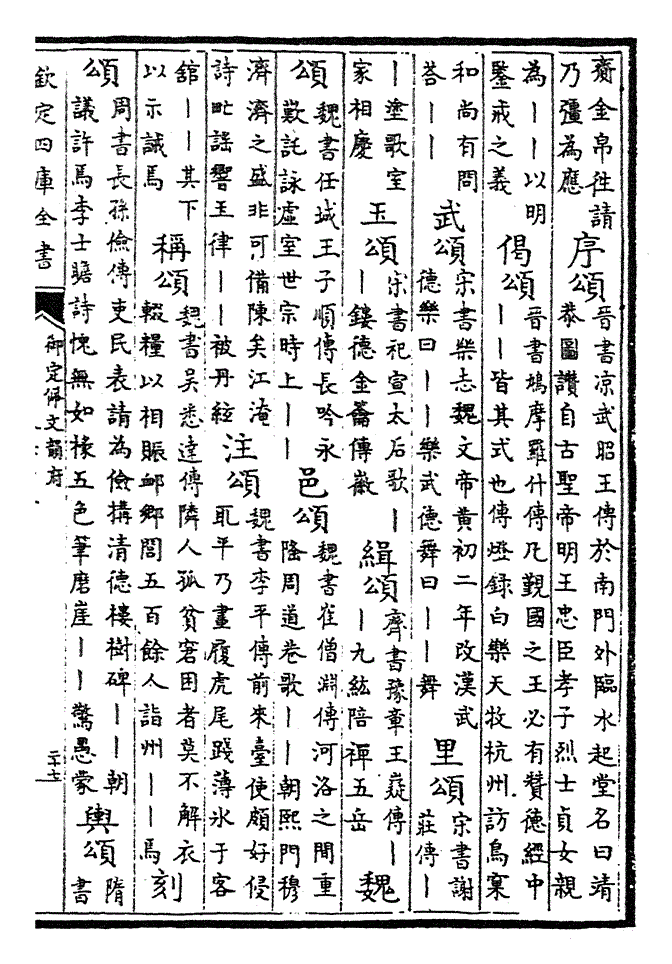 齎金帛往請乃彊為應序頌晉書凉武昭王傳於南門外臨水起堂名曰靖恭圖讚自古聖帝明王忠臣孝子烈士貞女親
為——以明鑒戒之義偈頌晉書鳩摩羅什傳凡覲國之王必有贊德經中——皆其式也傳燈録白樂天牧杭州訪鳥窠
和尚有問荅——武頌宋書樂志魏文帝黄初二年改漢武德樂曰——樂武德舞曰——舞里頌宋書謝莊傳—
—塗歌室家相慶玉頌宋書祀宣太后歌——鏤德金薦傳徽緝頌齊書豫章王嶷傳——九紘陪禪五岳魏
頌魏書任城王子順傳長吟永歎託詠虛室世宗時上——邑頌魏書崔僧淵傳河洛之間重隆周道巷歌——朝熙門穆
濟濟之盛非可備陳矣江淹詩甿謡響玉律——被丹絃注頌魏書李平傳前來臺使頗好侵耴平乃畫履虎尾踐薄氷于客
舘——其下以示誡焉稱頌魏書吴悉達傳隣人孤貧窘困者莫不解衣輟糧以相賑邮鄉閭五百餘人詣州——焉刻
頌周書長孫儉傳吏民表請為儉搆清德樓樹碑——朝議許焉李士瞻詩愧無如椽五色筆磨崖——驚愚蒙輿頌隋書
欽定四庫全書
御定佩文韻府
二十七